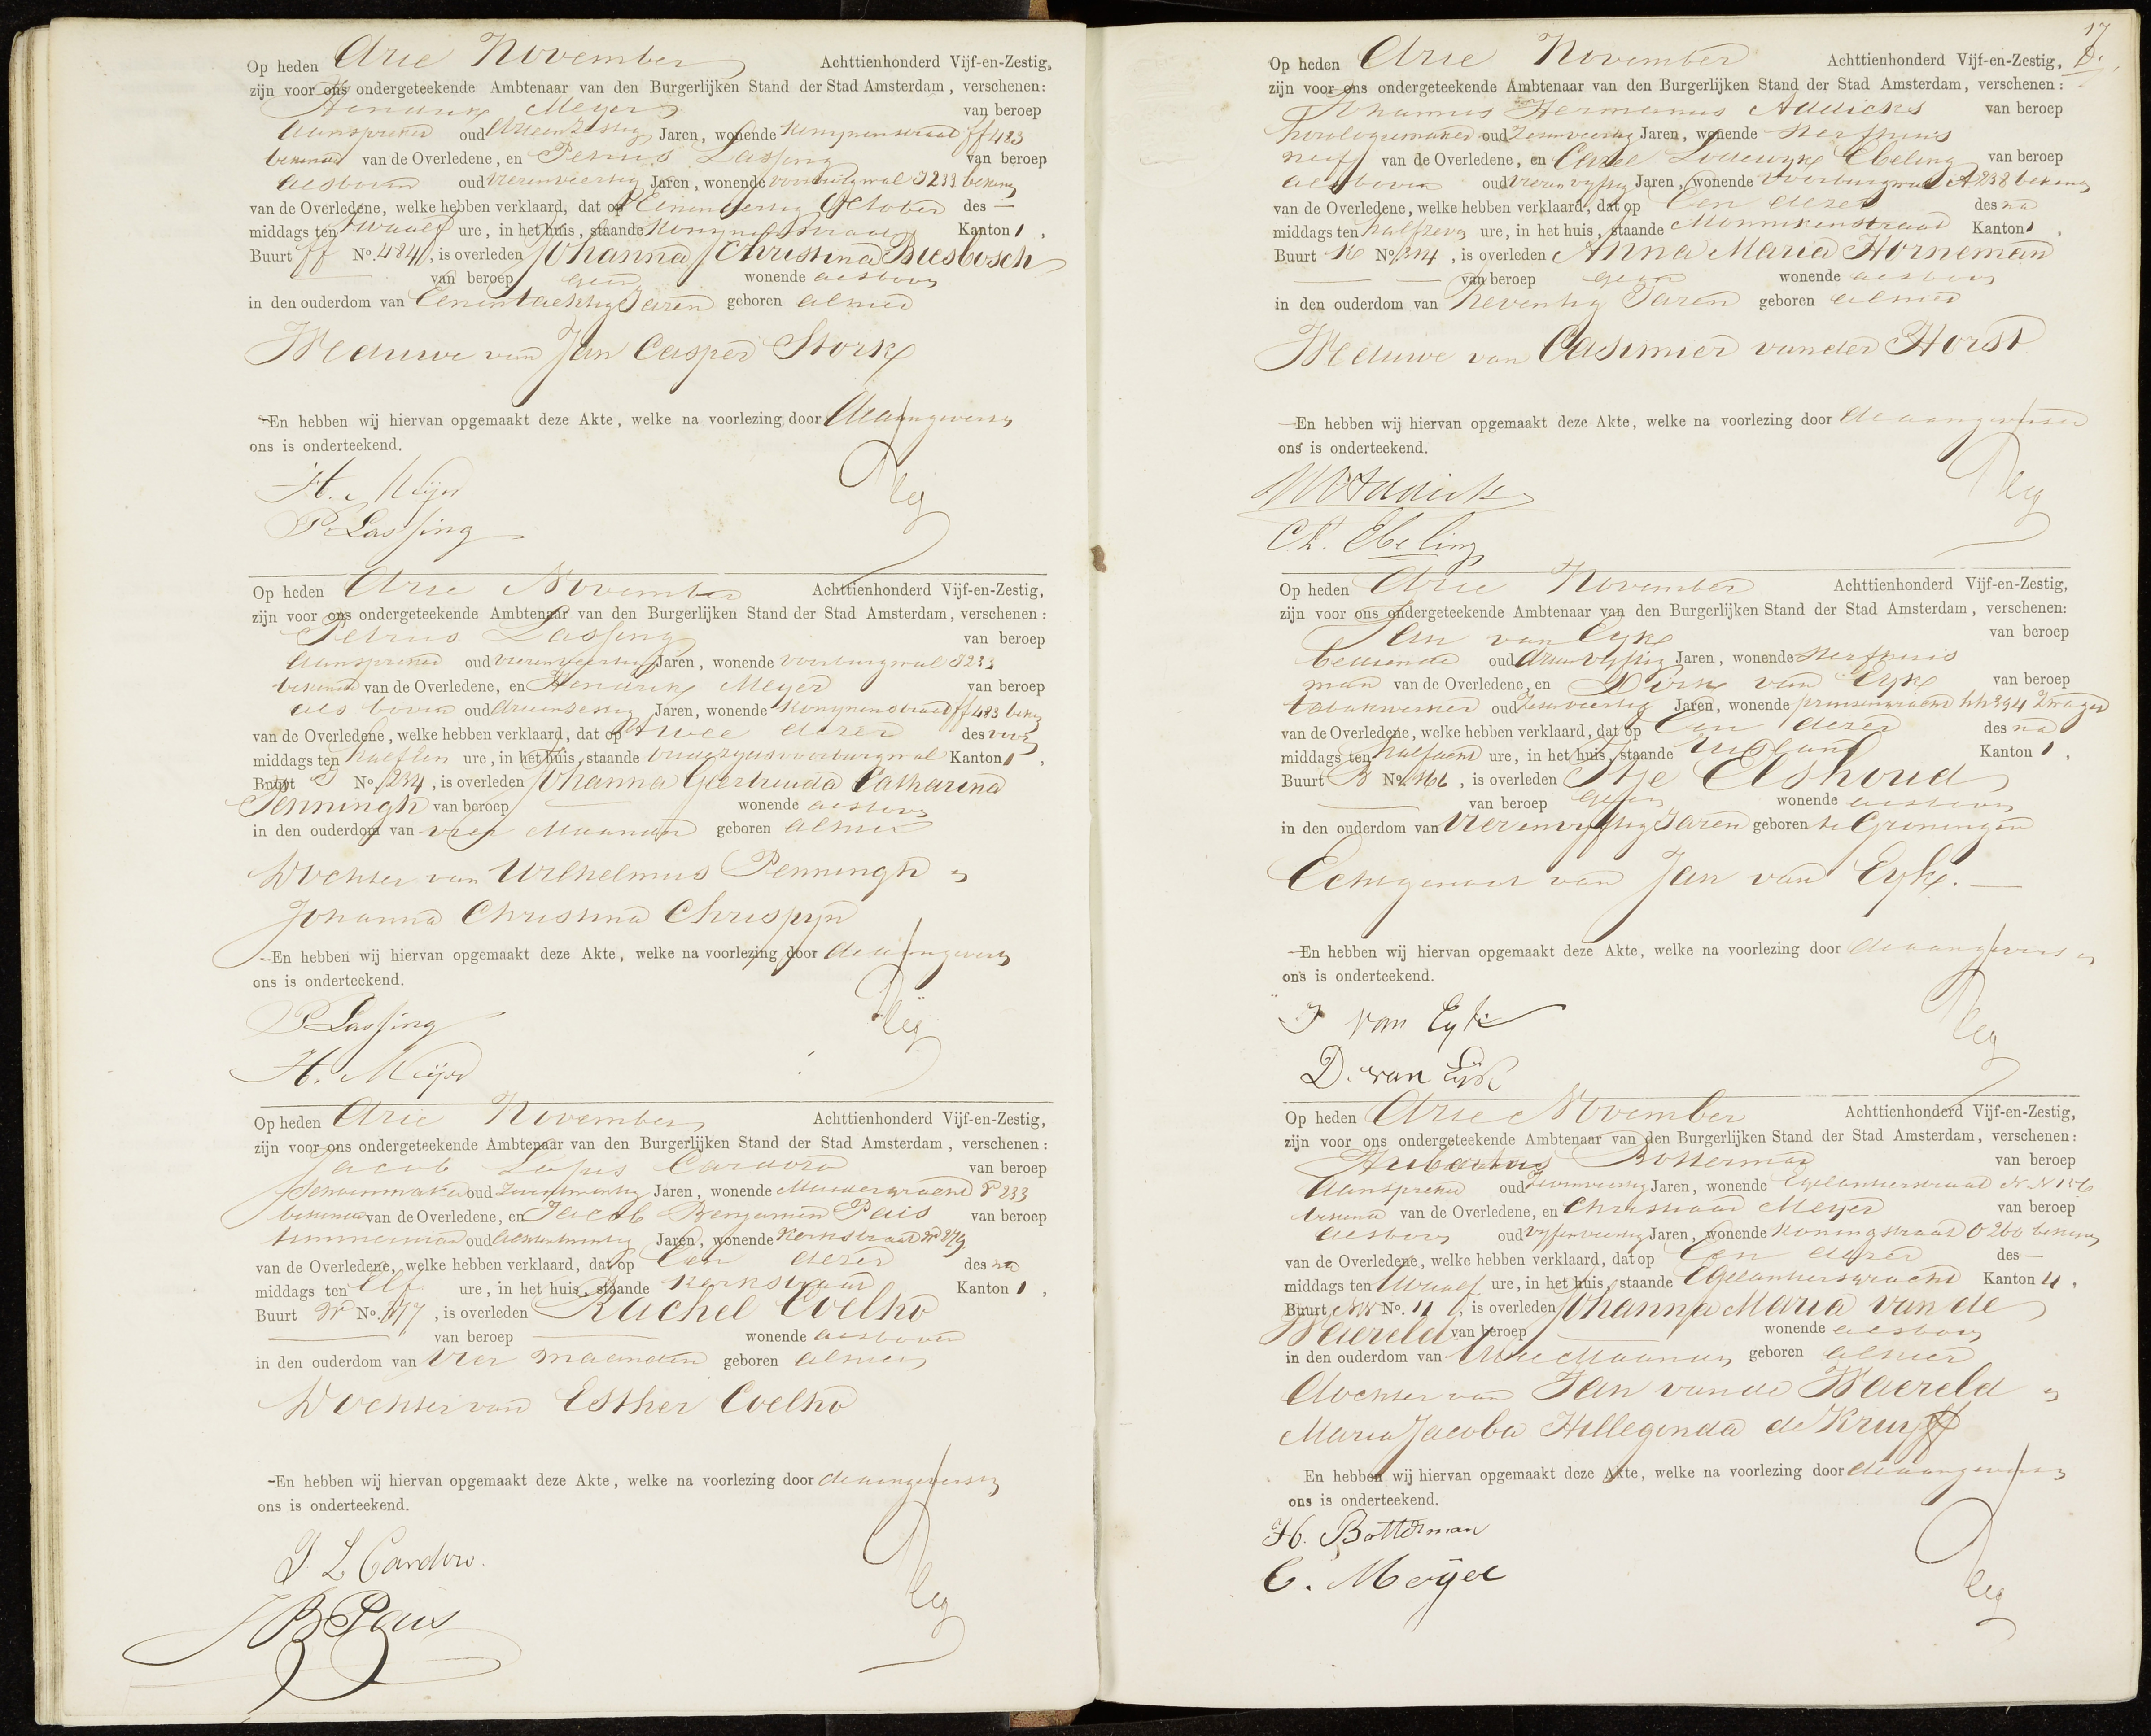 Op heden drie November Achttienhonderd Vijf-en-Zestig,
zijn voor ons ondergeteekende Ambtenaar van den Burgerlijken Stand der Stad Amsterdam, verschenen:
Hendrik Meyer van beroep
Aanspreker oud drieenzestig Jaren, wonende Konynenstraat ff 483
bekende van de Overledene, en Petrus Lassing van beroep
als boven oud vierenveertig Jaren, wonende voorburgwal J 233 bekende
van de Overledene, welke hebben verklaard, dat op Eenendertig October des —
middags ten twaalf ure, in het huis, staande Konynenstraat Kanton 1,
Buurt ff No. 484, is overleden Johanna Christina Biesbosch
van beroep geen wonende als boven
in den ouderdom van Eenentachtig Jaren geboren alhier
Weduwe van Jan Casper Stork
En hebben wij hiervan opgemaakt deze Akte, welke na voorlezing door de aangevers en
ons is onderteekend.
H. Meijer
P. Lassing
Op heden drie November Achttienhonderd Vijf-en-Zestig,
zijn voor ons ondergeteekende Ambtenaar van den Burgerlijken Stand der Stad Amsterdam, verschenen:
Petrus Lassing van beroep
Aanspreker oud vierenveertig Jaren, wonende voorburgwal J 233
bekende van de Overledene, en Hendrik Meyer van beroep
als boven oud drieenzestig Jaren, wonende Konynenstraat ff 483 bekende
van de Overledene, welke hebben verklaard, dat op twee dezer des voor
middags ten half een ure, in het huis, staande oudezydsvoorburgwal Kanton 1,
Buurt J No. 234, is overleden Johanna Geertruida Catharina
Penningh van beroep — wonende als boven
in den ouderdom van vier Maanden geboren alhier
Dochter van Wilhelmus Penningh en
Johanna Christina Chrispyn
En hebben wij hiervan opgemaakt deze Akte, welke na voorlezing door de aangevers en
ons is onderteekend.
P. Lassing
H. Meijer
Op heden drie November Achttienhonderd Vijf-en-Zestig,
zijn voor ons ondergeteekende Ambtenaar van den Burgerlijken Stand der Stad Amsterdam, verschenen:
Jacob Lopes Cardozo van beroep
Schoenmaker oud Jaren, wonende Muidergracht P 233
bekende van de Overledene, en Jacob Benjamin Pais van beroep
timmerman oud achtentwintig Jaren, wonende Kerkstraat W 879
van de Overledene, welke hebben verklaard, dat op Een dezer des na
middags ten Elf ure, in het huis, staande Kerkstraat Kanton 1,
Buurt W No. , is overleden Rachel Coelho
van beroep — wonende als boven
in den ouderdom van vier maanden geboren alhier
Dochter van Esther Coelho
En hebben wij hiervan opgemaakt deze Akte, welke na voorlezing door de aangevers en
ons is onderteekend.
J. L. Cardozo.
J B Pais
17
Op heden drie November Achttienhonderd Vijf-en-Zestig,
zijn voor ons ondergeteekende Ambtenaar van den Burgerlijken Stand der Stad Amsterdam, verschenen:
Johannes Hermanus Addicks van beroep
horlogiemaker oud Jaren, wonende Sterfhuis
neef van de Overledene, en Carel Lodewyk Ebeling van beroep
als boven oud vierenvyftig Jaren, wonende Voorburgwal A 238 bekende
van de Overledene, welke hebben verklaard, dat op Een dezer des na
middags ten half zeven ure, in het huis, staande Monnikenstraat Kanton 1,
Buurt K No. 314, is overleden Anna Maria Horneman
van beroep geen wonende als boven
in den ouderdom van Zeventig Jaren geboren alhier
Weduwe van Casimier van der Horst
En hebben wij hiervan opgemaakt deze Akte, welke na voorlezing door de aangevers en
ons is onderteekend.
Addicks
C. L. Ebeling
Op heden drie November Achttienhonderd Vijf-en-Zestig,
zijn voor ons ondergeteekende Ambtenaar van den Burgerlijken Stand der Stad Amsterdam, verschenen:
Jan van Eyk van beroep
bediende oud drieenvyftig Jaren, wonende Sterfhuis
man van de Overledene, en Dirk van Eyk van beroep
tabakwerker oud Jaren, wonende prinsengracht hh 394 Zwager
van de Overledene, welke hebben verklaard, dat op Een dezer des na
middags ten half acht ure, in het huis, staande Kanton 1,
Buurt B No. 166, is overleden Itje Elshoud
van beroep geen wonende als boven
in den ouderdom van Vierenvyftig Jaren geboren te Groningen
Echtgenoot van Jan van Eyk. —
En hebben wij hiervan opgemaakt deze Akte, welke na voorlezing door de aangevers en
ons is onderteekend.
J van Eyk
D. van Eijk
Op heden drie November Achttienhonderd Vijf-en-Zestig,
zijn voor ons ondergeteekende Ambtenaar van den Burgerlijken Stand der Stad Amsterdam, verschenen:
Hubertus Botterman van beroep
Aanspreker oud Jaren, wonende Egelantierstraat NN 156
bekende van de Overledene, en Christiaan Meyer van beroep
als boven oud vyfenveertig Jaren, wonende Koningstraat O 260 bekende
van de Overledene, welke hebben verklaard, dat op Een dezer des —
middags ten twaalf ure, in het huis, staande Egelantiersgracht Kanton 4,
Buurt NN No. 11, is overleden Johanna Maria van de
Waereld van beroep — wonende als boven
in den ouderdom van drie Maanden geboren alhier
dochter van Jan van de Waereld en
Maria Jacoba Hillegonda de Kruyff
En hebben wij hiervan opgemaakt deze Akte, welke na voorlezing door de aangevers en
ons is onderteekend.
H. Botterman
C. Meijer